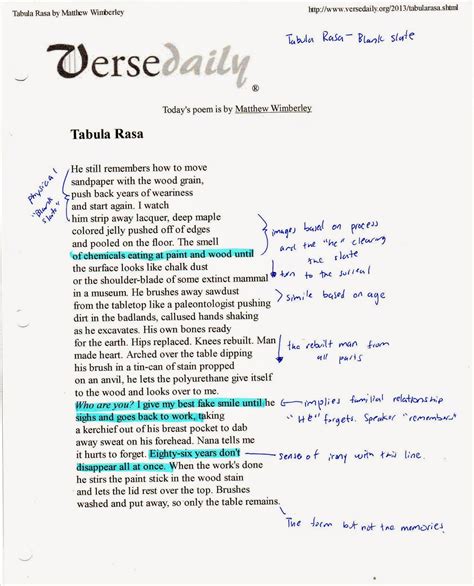 Tabula Rasa by Matthew Wimberley
http://www.versedaily.org/2013/tabularasa.shtml
Tabula Rasa - Blank slate
Verse daily
®
Today's poem is by Matthew Wimberley
Tabula Rasa
Physical "Blank slate"
He still remembers how to move
sandpaper with the wood grain,
push back years of weariness
and start again. I watch
him strip away lacquer, deep maple
colored jelly pushed off of edges
and pooled on the floor. The smell
of chemicals eating at paint and wood until
the surface looks like chalk dust
or the shoulder-blade of some extinct mammal
in a museum. He brushes away sawdust
from the tabletop like a paleontologist pushing
dirt in the badlands, callused hands shaking
as he excavates. His own bones ready
for the earth. Hips replaced. Knees rebuilt. Man
made heart. Arched over the table dipping
his brush in a tin-can of stain propped
on an anvil, he lets the polyurethane give itself
to the wood and looks over to me.
Who are you? I give my best fake smile until he
sighs and goes back to work, taking
a kerchief out of his breast pocket to dab
away sweat on his forehead. Nana tells me
it hurts to forget. Eighty-six years don't
disappear all at once. When the work's done
he stirs the paint stick in the wood stain
and lets the lid rest over the top. Brushes
washed and put away, so only the table remains.
images based on process
and the "he" clearing
the slate
turn to the surreal
simile based on age
the rebuilt man from
all parts
implies familial relationship
"He" forgets. Speaker "remembers"
sense of irony with this line.
The form but not the memories.